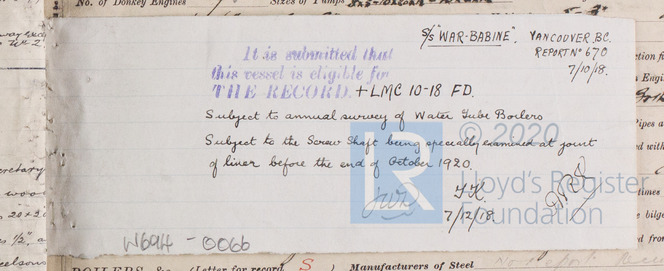 No. of Donkey Engines
Sizes of Pumps
S/S "WAR-BABINE". VANCOUVER, B.C.
REPORT No 670
7/10/18.
It is submitted that
this vessel is eligible for
THE RECORD. + LMC 10-18 FD.
Subject to annual survey of Water Tube Boilers
Subject to the Screw Shaft being specially examined at joint
of liner before the end of October 1920.
© 2020
LR
Lloyd's Register
Foundation
7/12/18
W694-0066
BOILERS, &c. (Letter for record S) Manufacturers of Steel